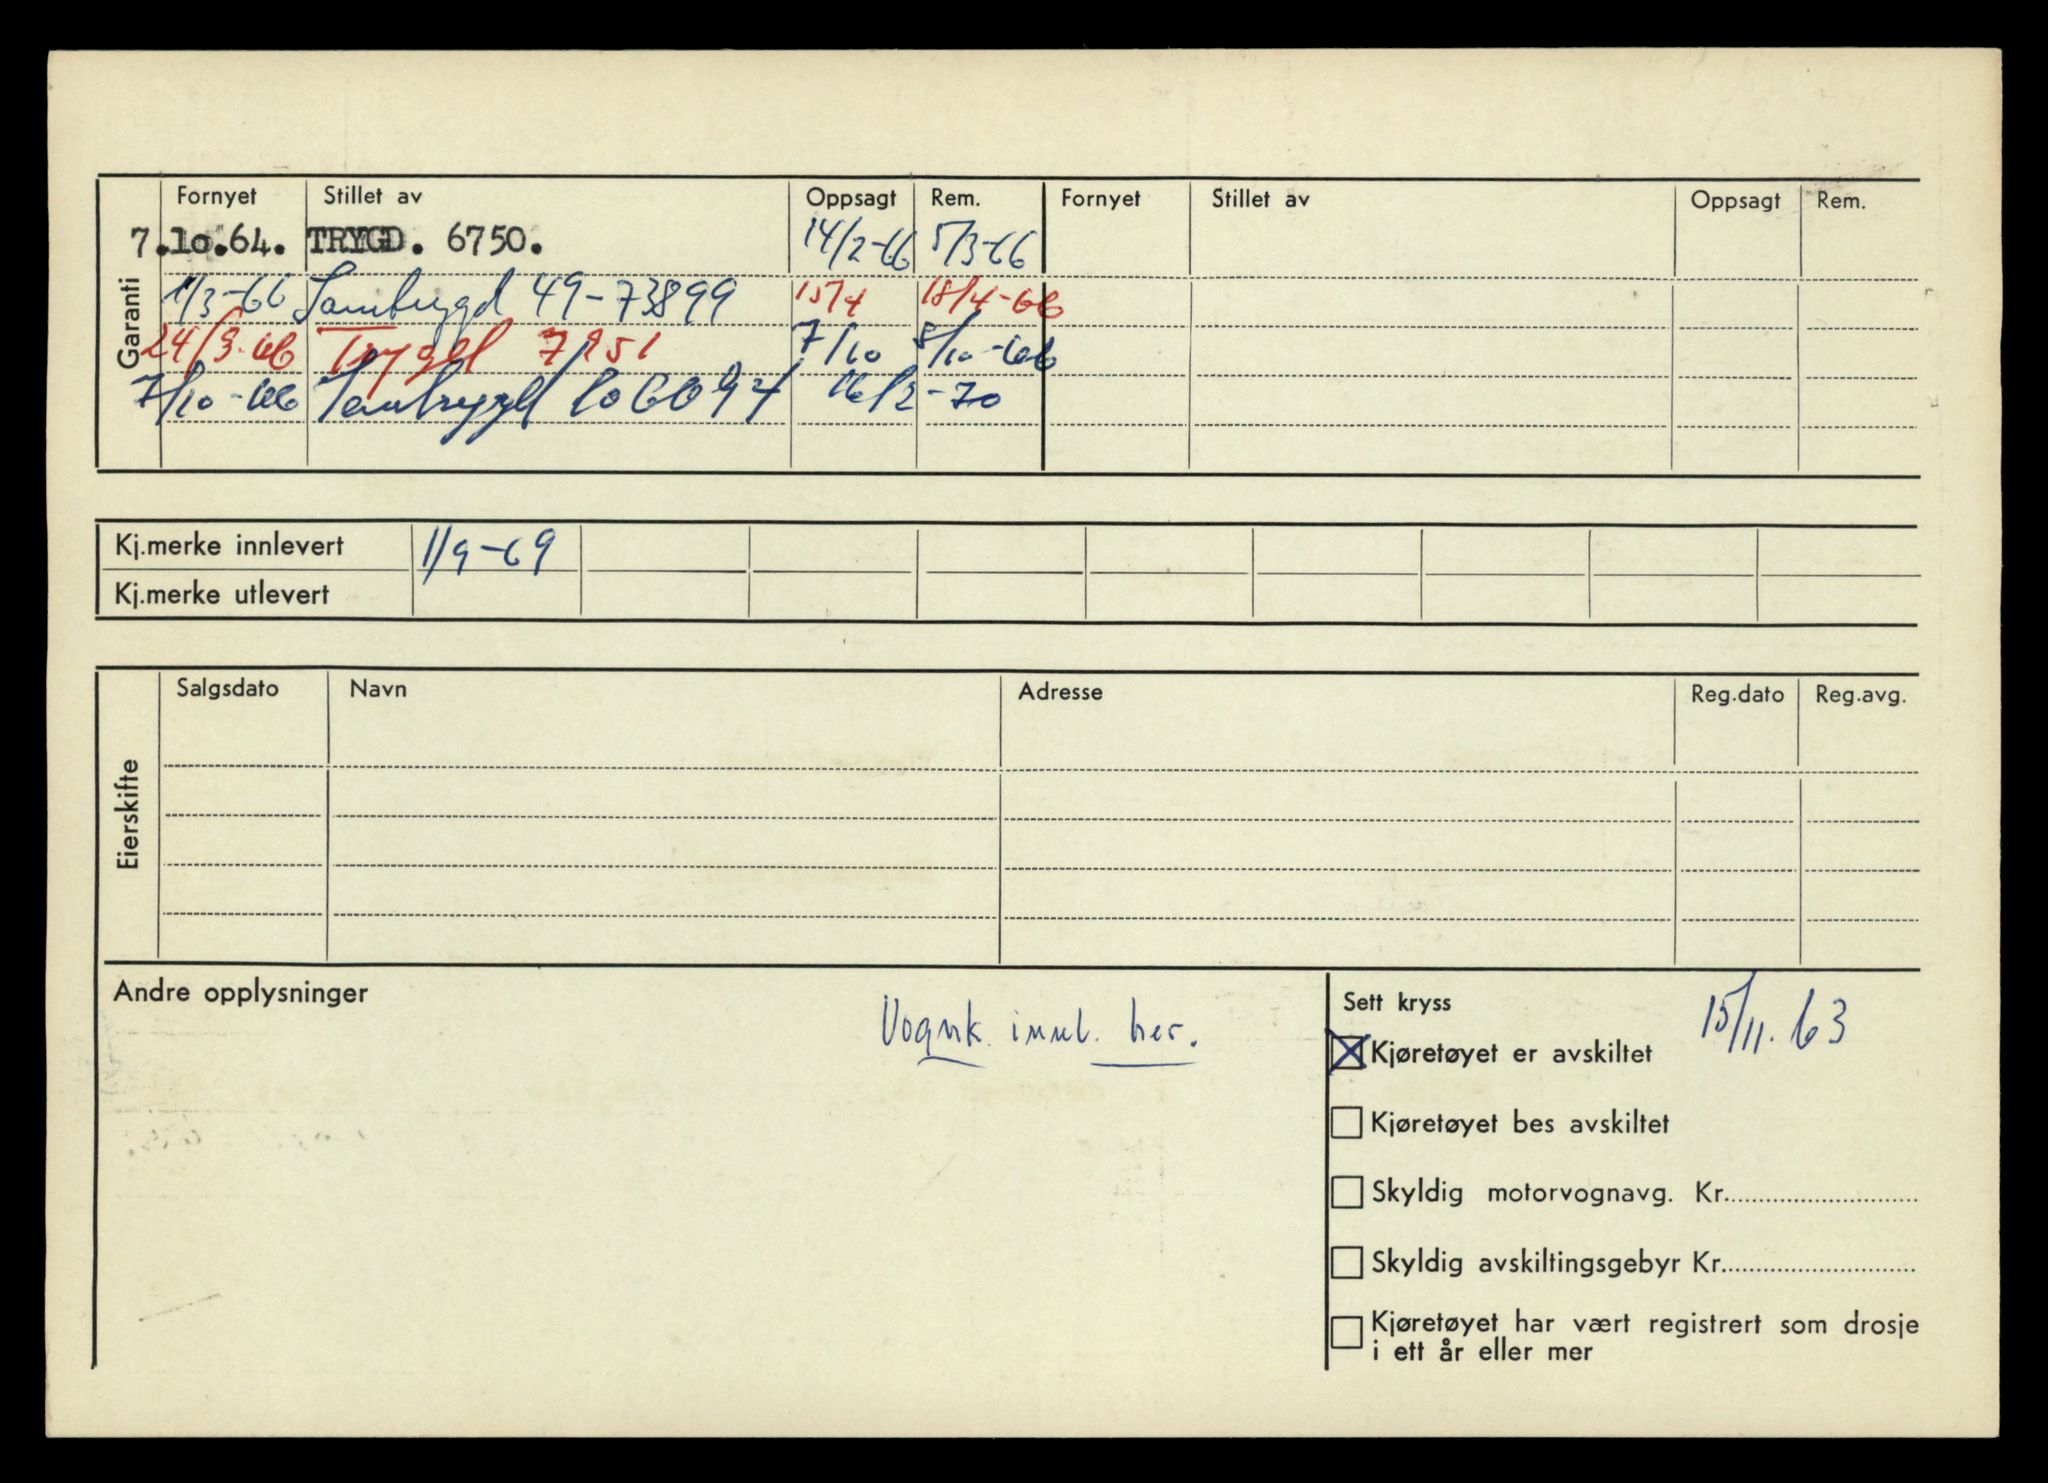 Garanti
Fornyet Stillet av Oppsagt Rem. Fornyet Stillet av Oppsagt Rem.
7.10.64. TRYGD. 6750. 14/2-66 5/3-66
1/3-66 Sambygd 49-73899 15/4 18/4-66
24/3-66 Trygd 7851 7/10 8/10-66
7/10-66 Sambrygd 606094 16/2-70
Kj.merke innlevert 1/9-69
Kj.merke utlevert
Eierskifte
Salgsdato Navn Adresse Reg.dato Reg.avg.
Andre opplysninger
Vognk. innl. her.
Sett kryss 15/11.63
Kjøretøyet er avskiltet
Kjøretøyet bes avskiltet
Skyldig motorvognavg. Kr
Skyldig avskiltingsgebyr Kr
Kjøretøyet har vært registrert som drosje
i ett år eller mer